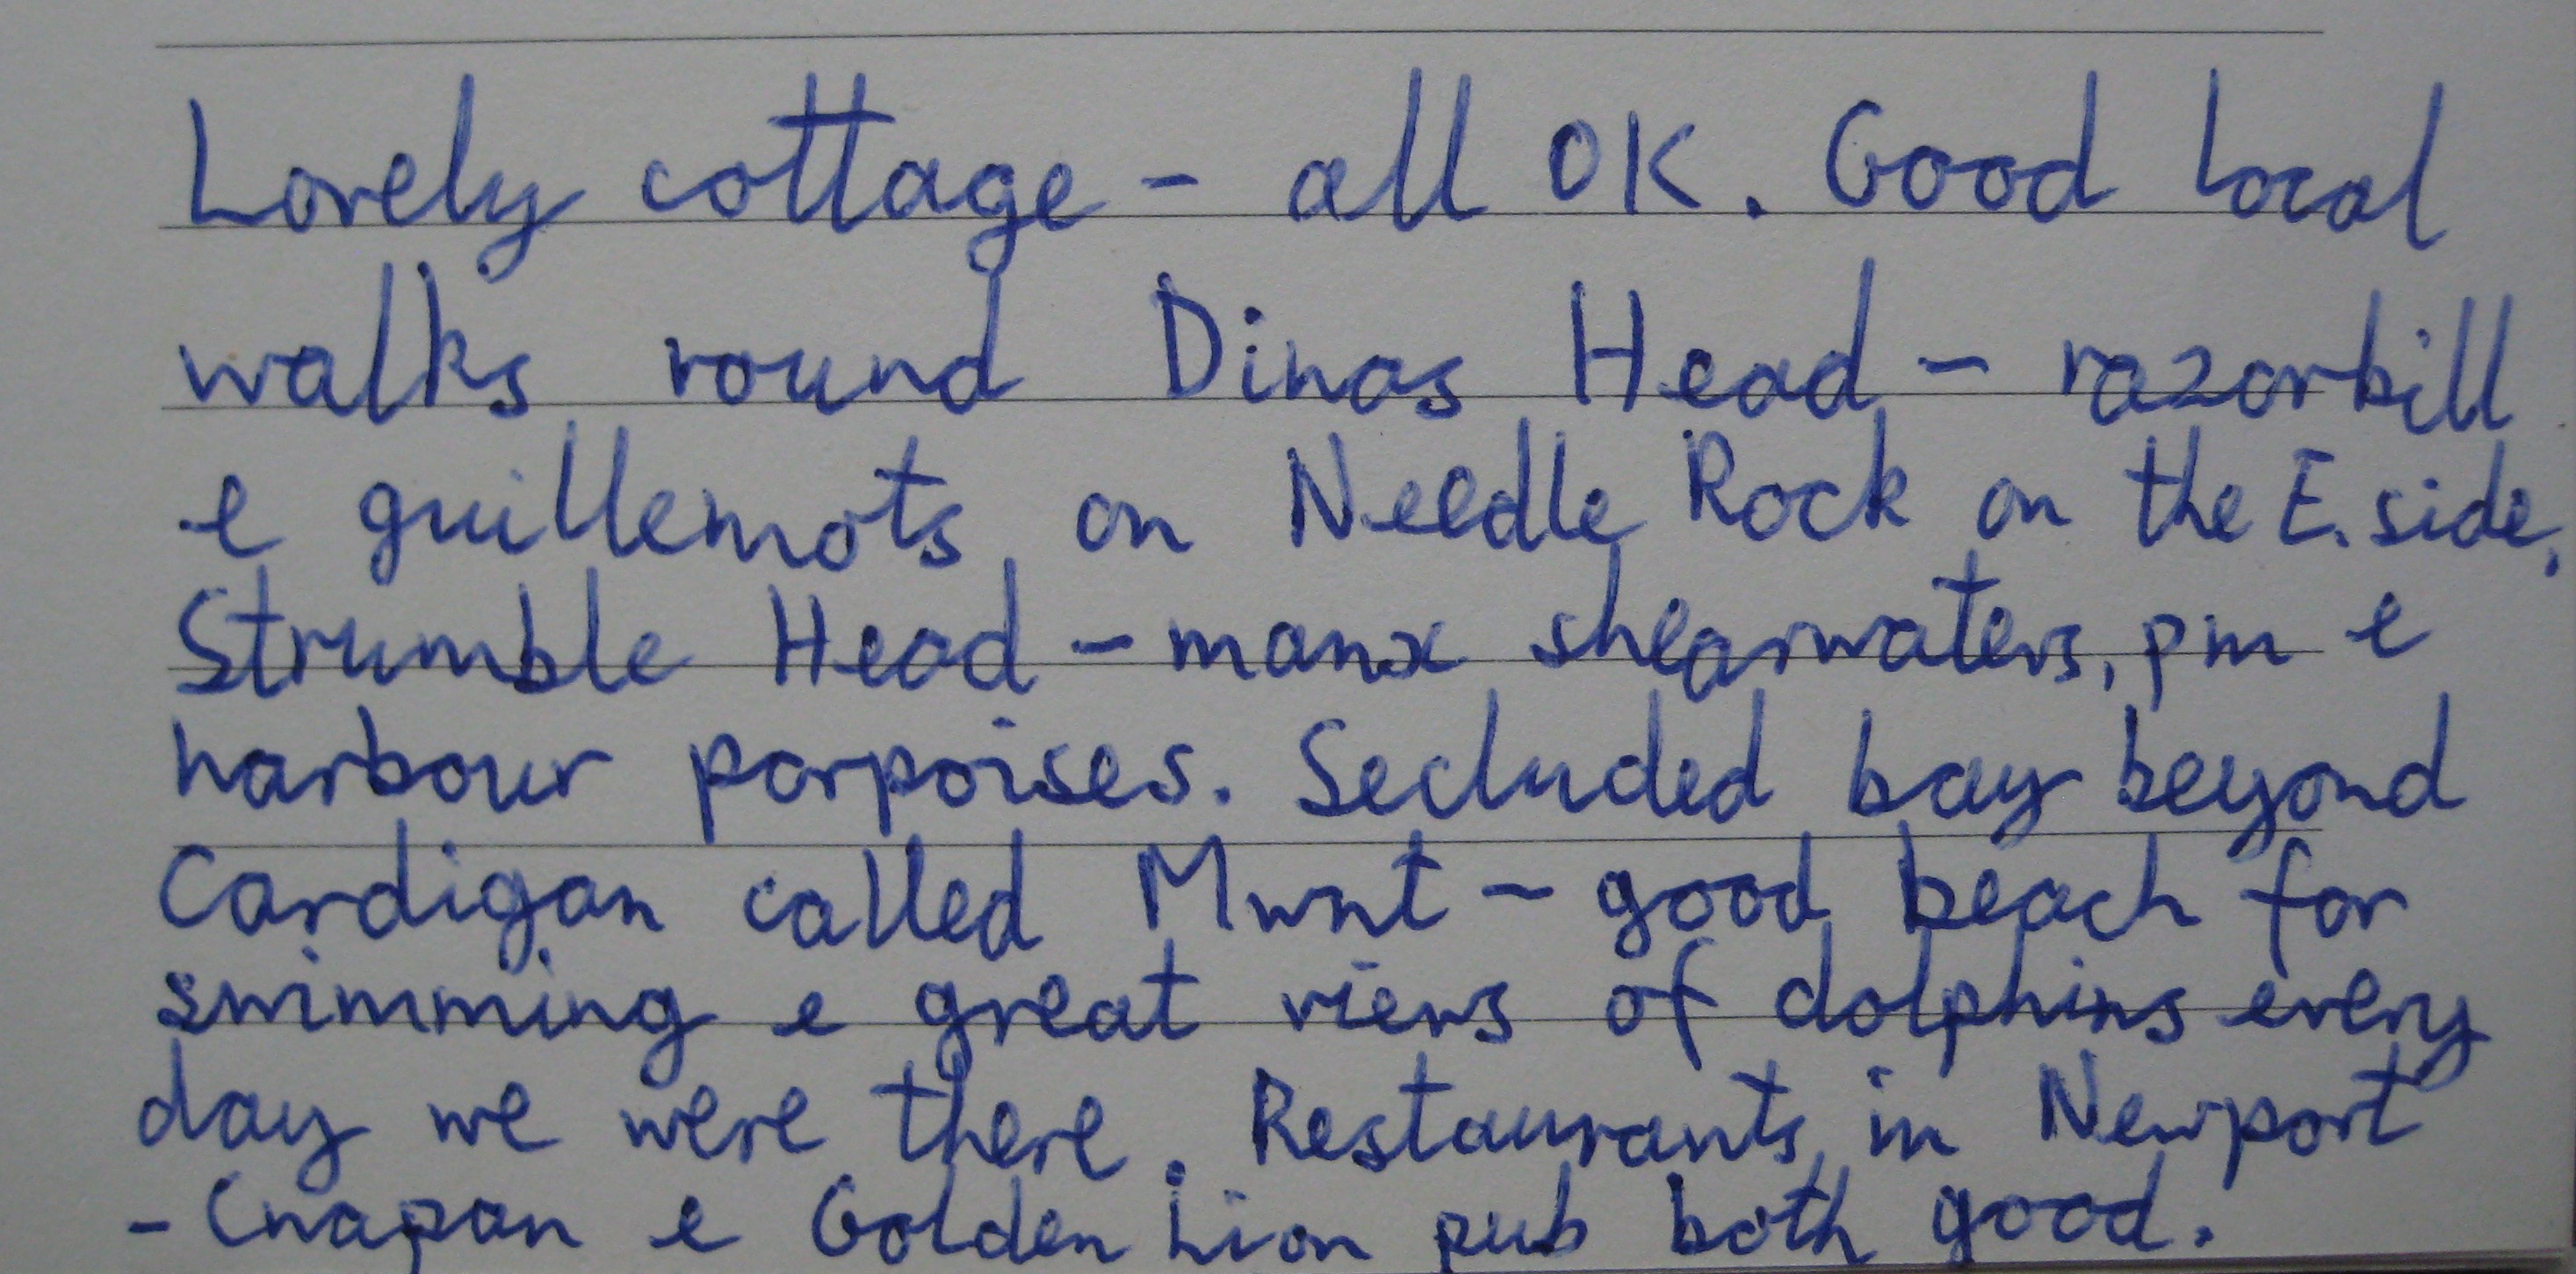 Lovely cottage - all OK. Good local
walks round Dinas Head - razorbill
& guillemots on Needle Rock on the E. side.
Strumble Head - manx shearwaters, pm &
harbour porpoises. Secluded bay beyond
Cardigan called Mwnt - good beach for
swimming & great views of dolphins every
day we were there. Restaurants in Newport
- Cnapan & Golden Lion pub both good.